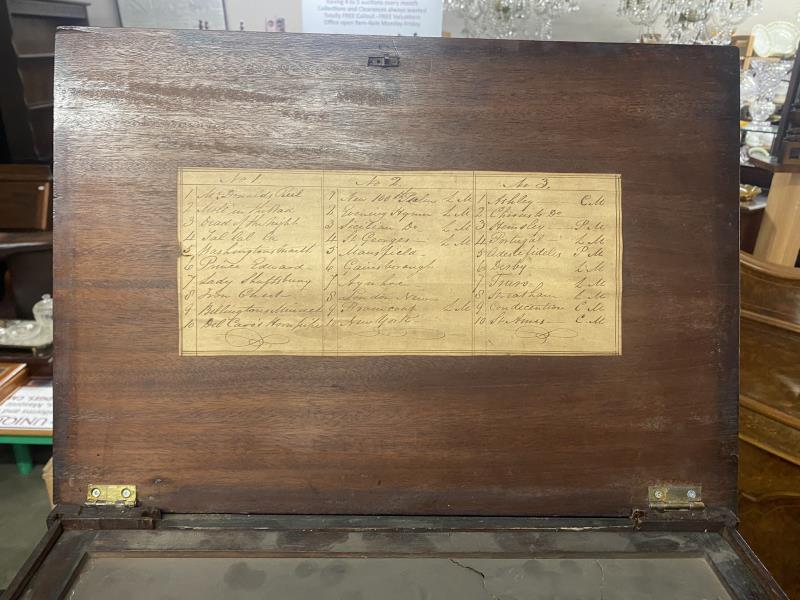 having 4 to 5 auctions every month
Collections and Clearances always wanted
Totally FREE Callout - FREE Valuations
Office open 9am-4pm Monday-Friday
No 1
1 McDonalds Reel
2 Moll in the Wad
3 Dead of the Night
4 Lal Lal La
5
6 Prince Edward
7 Lady Shaftsbury
8 Iron Chest
9 Billingtons Minuet
10 Del Caro's Hornpipe
No 2
1 New 100th Psalm L M
2 Evening Hymn L M
3 Sicilian Do L M
4 St Georges L M
5 Mansfield
6 Gainsborough
7
8 London New
9 L M
10 New York
No 3.
1 Ashley C M
2 Do
3 Hemsley P M
4 Portugal L M
5 Adeste fidelis P M
6 Derby L M
7 Truro L M
8 Streatham L M
9 Condescention C M
10 St Anns C M
UNIQUE